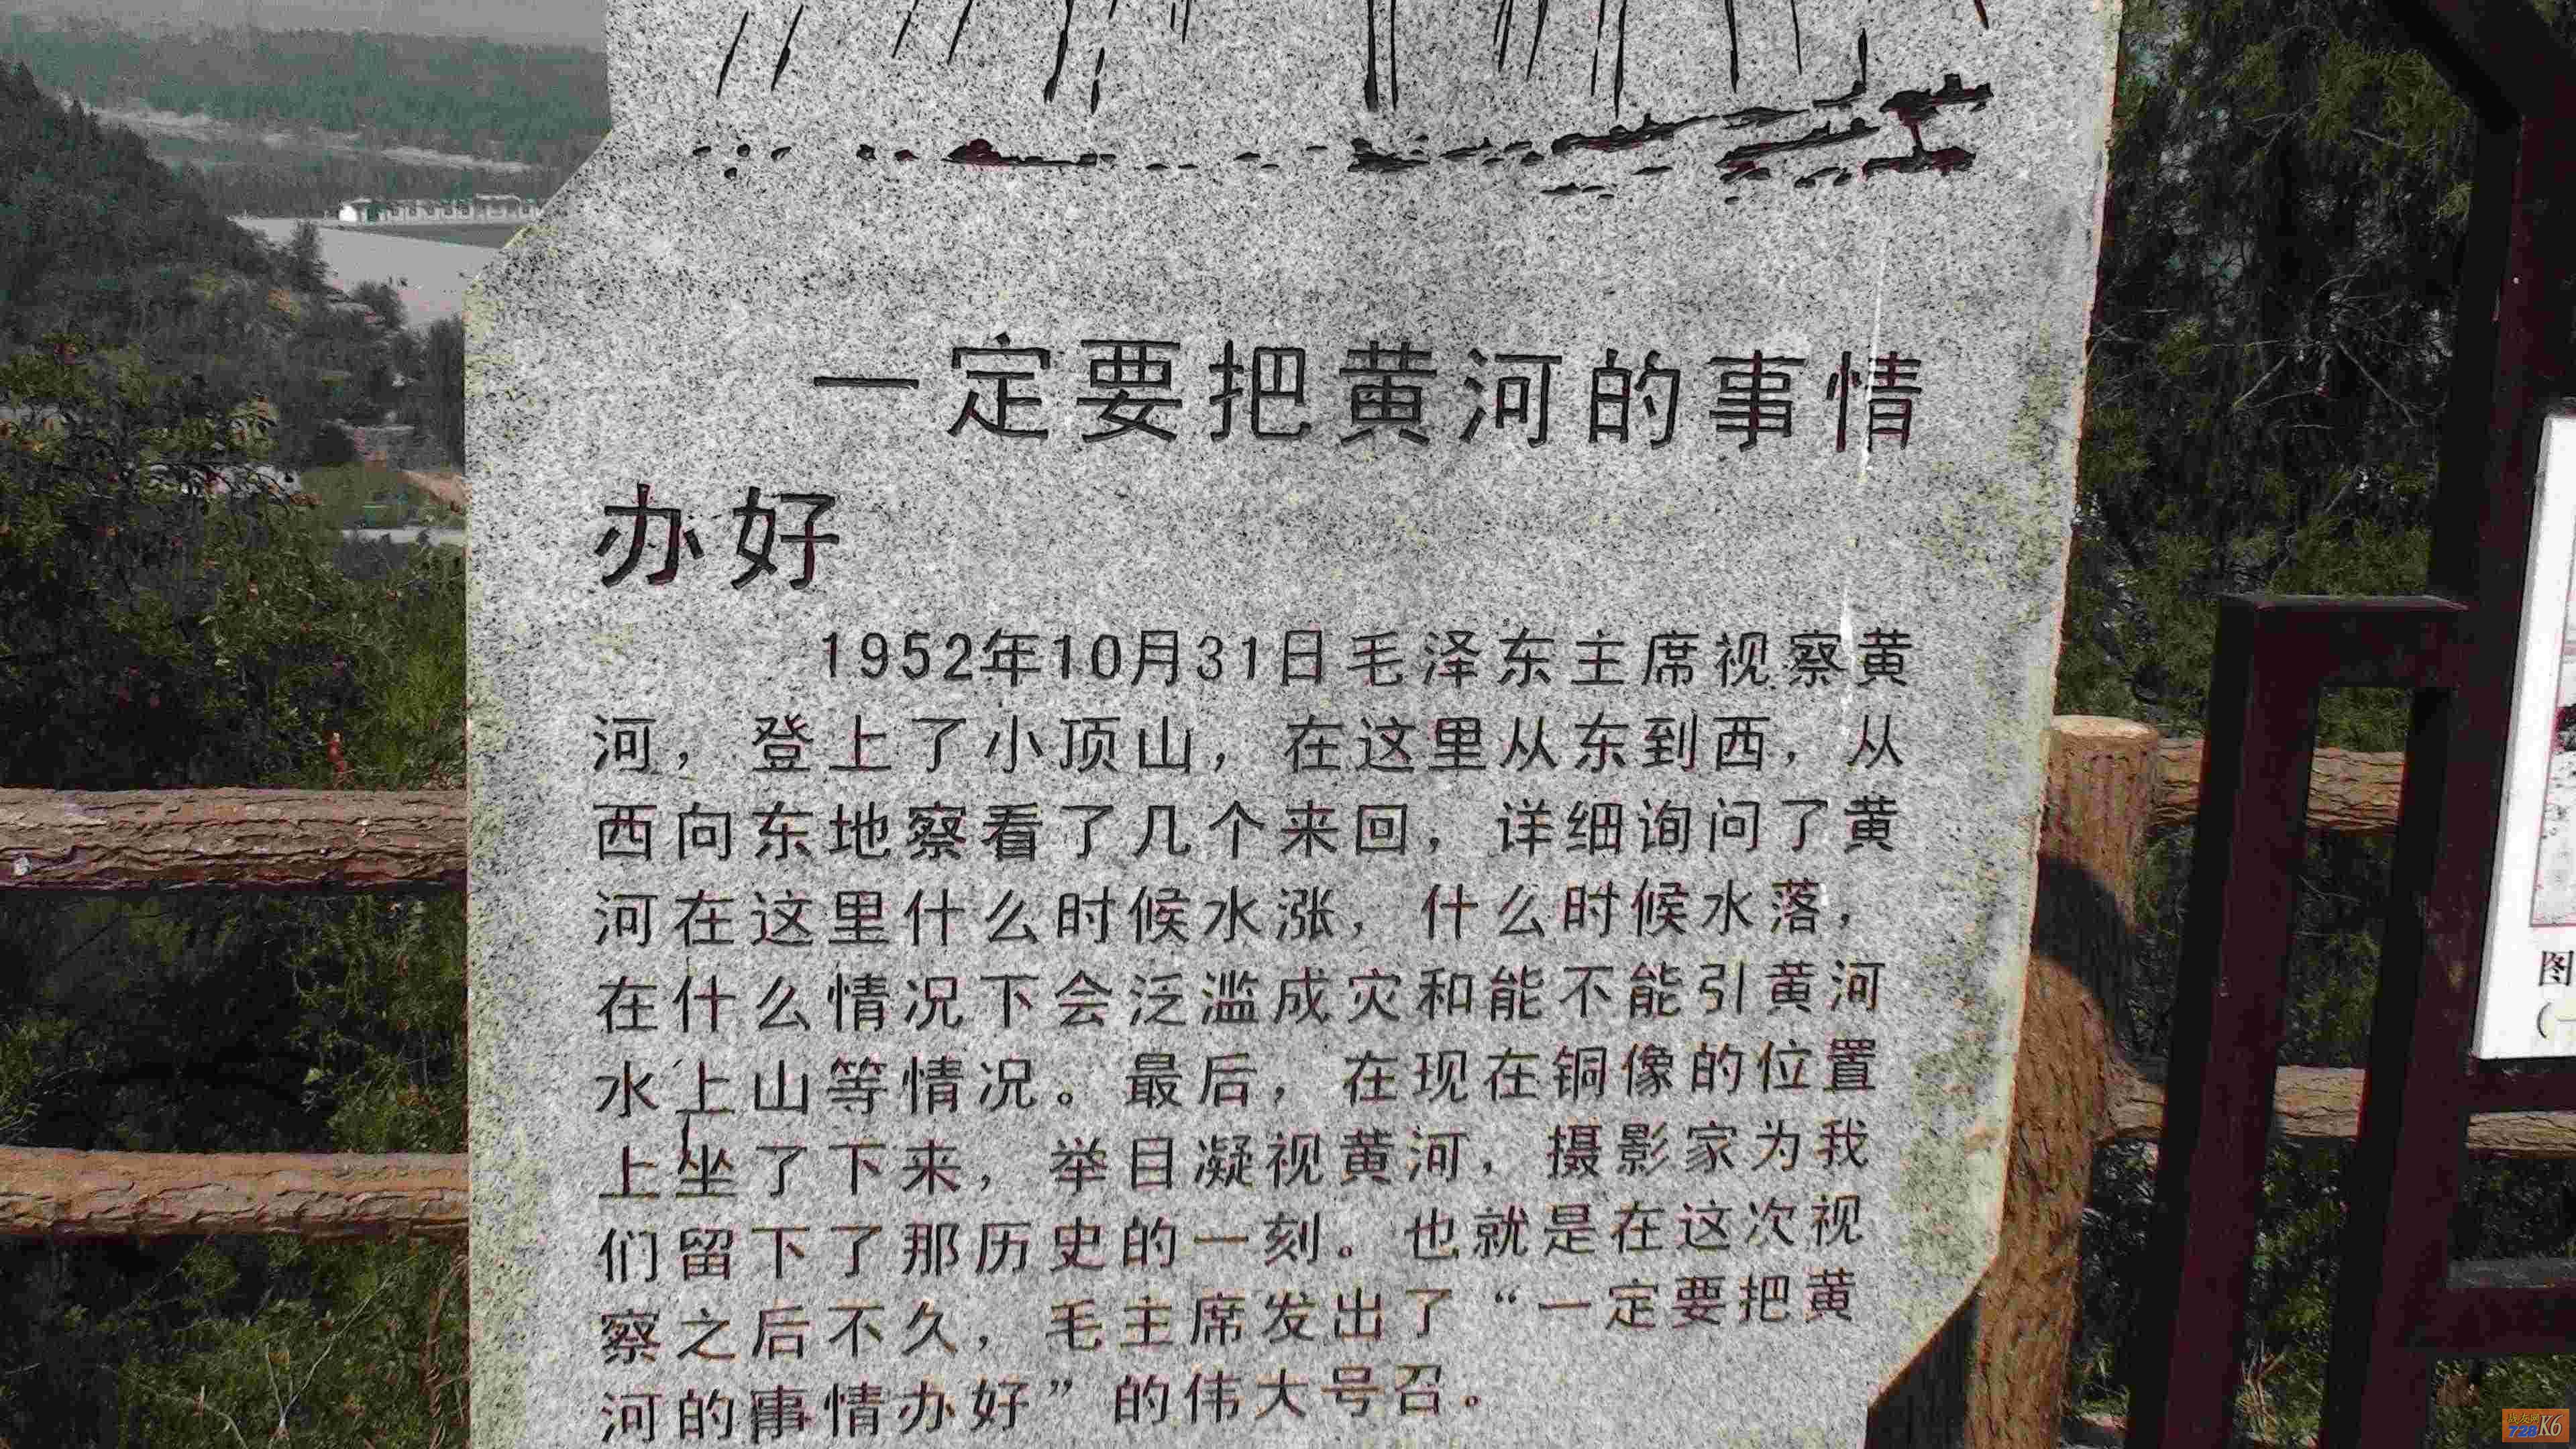 一定要把黄河的事情
办好
1952年10月31日毛泽东主席视察黄
河，登上了小顶山，在这里从东到西，从
西向东地察看了几个来回，详细询问了黄
河在这里什么时候水涨，什么时候水落，
在什么情况下会泛滥成灾和能不能引黄河
水上山等情况。最后，在现在铜像的位置
上坐了下来，举目凝视黄河，摄影家为我
们留下了那历史的一刻。也就是在这次视
察之后不久，毛主席发出了“一定要把黄
河的事情办好”的伟大号召。
图
(一
战友网
728K6